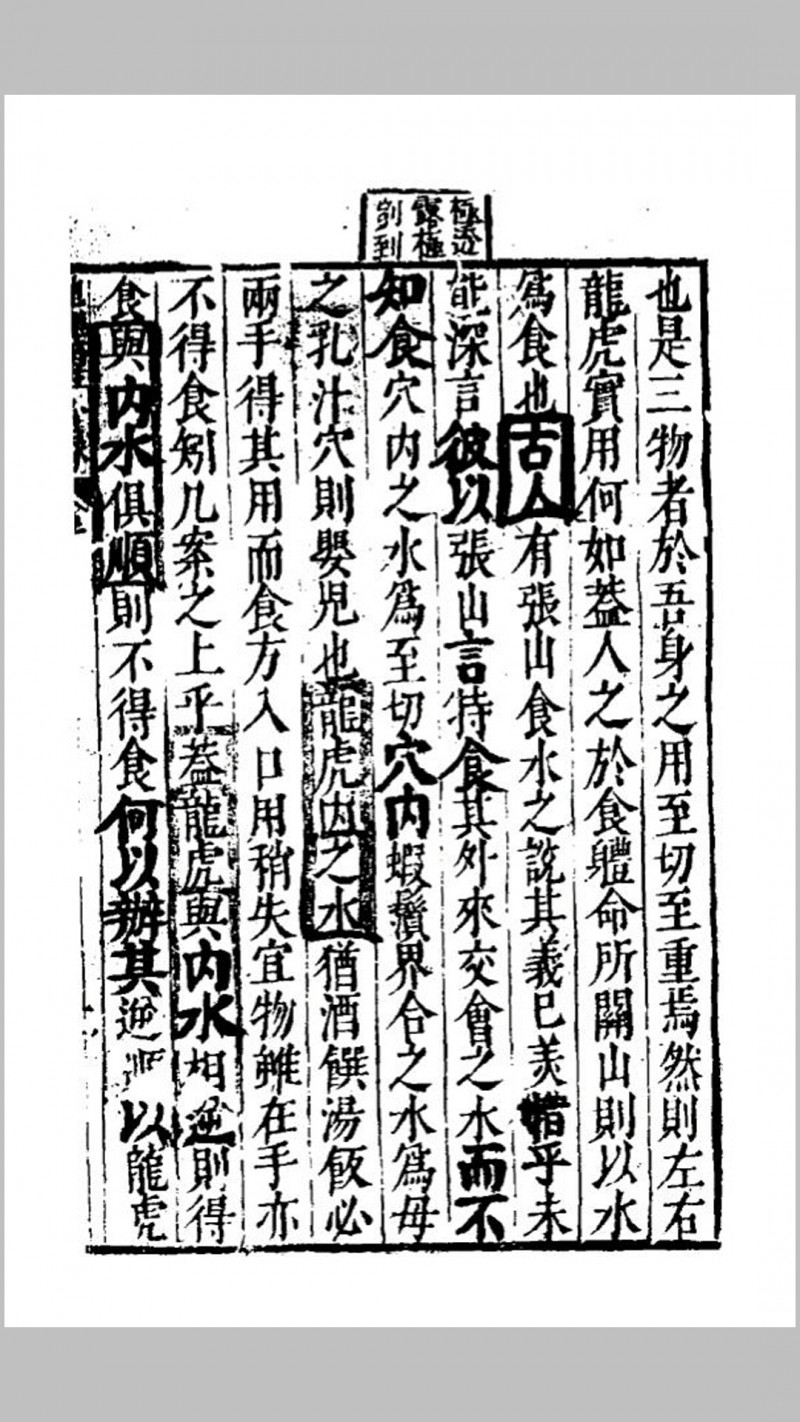 極透
露極
剴到
也是三物者於吾身之用至切至重焉然則左右
龍虎實用何如蓋人之於食軆命所關山則以水
爲食也古人有張山食水之說其義已美惜乎未
能深言彼以張山言待食其外來交會之水而不
知食穴内之水爲至切穴内蝦鬚界合之水爲母
之乳汁穴則嬰児也龍虎内之水猶酒饌湯飯必
兩手得其用而食方入口用稍失宜物雖在手亦
不得食矧几案之上乎蓋龍虎與内水相逆則得
食與内水俱順則不得食何以辦其逆順以龍虎